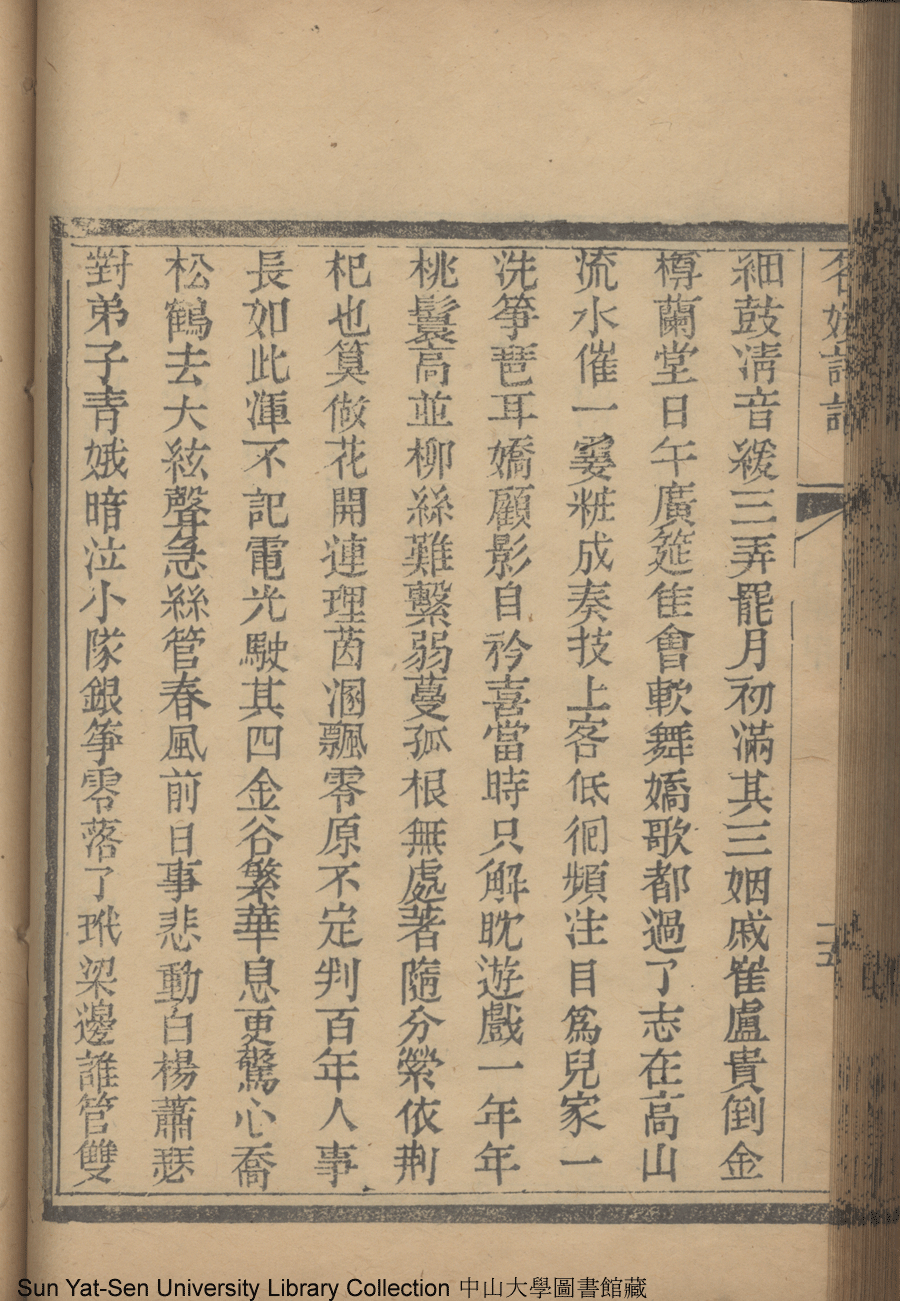 細鼓淸音緩三弄罷月初滿其三姻戚崔盧貴倒金
樽蘭堂日午廣筵隹會軟舞嬌歌都過了志在高山
流水催一霎粧成奏技上客低徊頻注目爲兒家一
洗箏琶耳嬌顧影自衿喜當時只解眈遊戲一年年
桃鬟高並柳絲難繫弱蔓孤根無處著隨分縈依荆
杞也算倣花開連理茵溷飄零原不定判百年人事
長如此渾不記電光駛其四金谷繁華息更驚心喬
松鶴去大絃聲急絲管春風前日事悲動白楊蕭瑟
對弟子青娥暗泣小隊銀箏零落了玳梁邊誰管雙
Sun Yat-Sen University Library Collection 中山大學圖書館藏